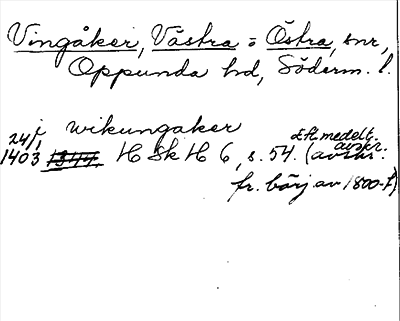 Vingåker, Västra o Östra, snr,
Oppunda hd, Söderm. l.
24/1 i wikungaker
1403 1344. HSkH 6, s. 54. (avskr.
d. ä. medelt. avskr.
fr. börj av 1800-t)